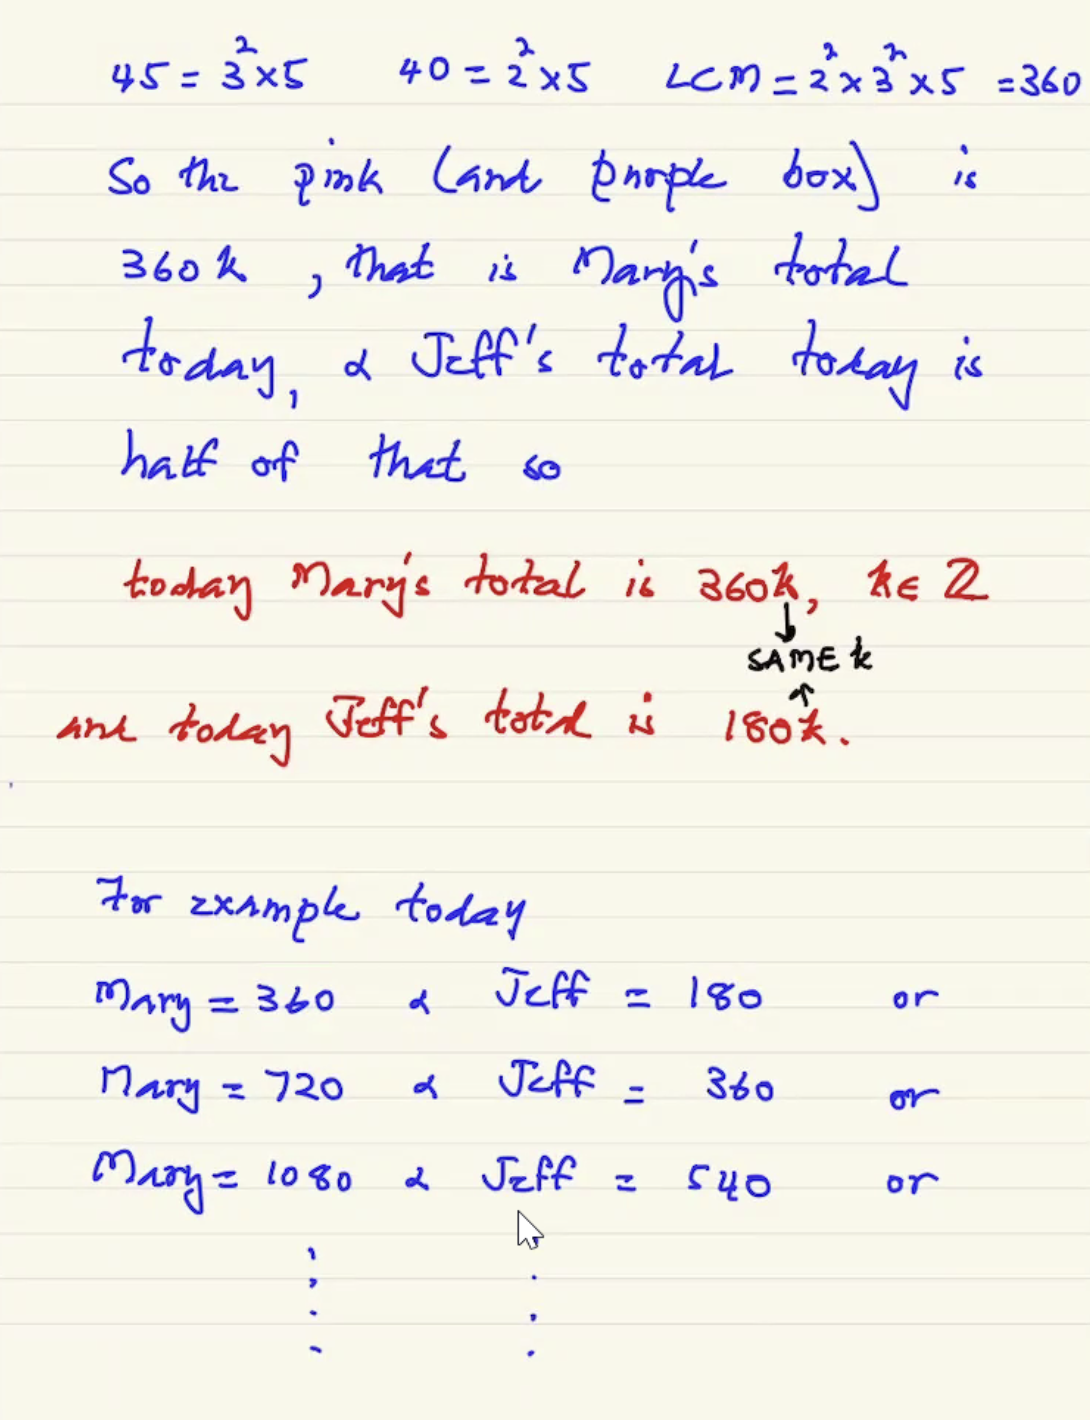 45 = 3²×5 40 = 2²×5 LCM = 2²×3²×5 = 360
So the pink (and purple box) is
360k, that is Mary's total
today, & Jeff's total today is
half of that so
today Mary's total is 360k, k∈ℤ
↓
SAME k
↑
and today Jeff's total is 180k.
For example today
Mary = 360 & Jeff = 180 or
Mary = 720 & Jeff = 360 or
Mary = 1080 & Jeff = 540 or